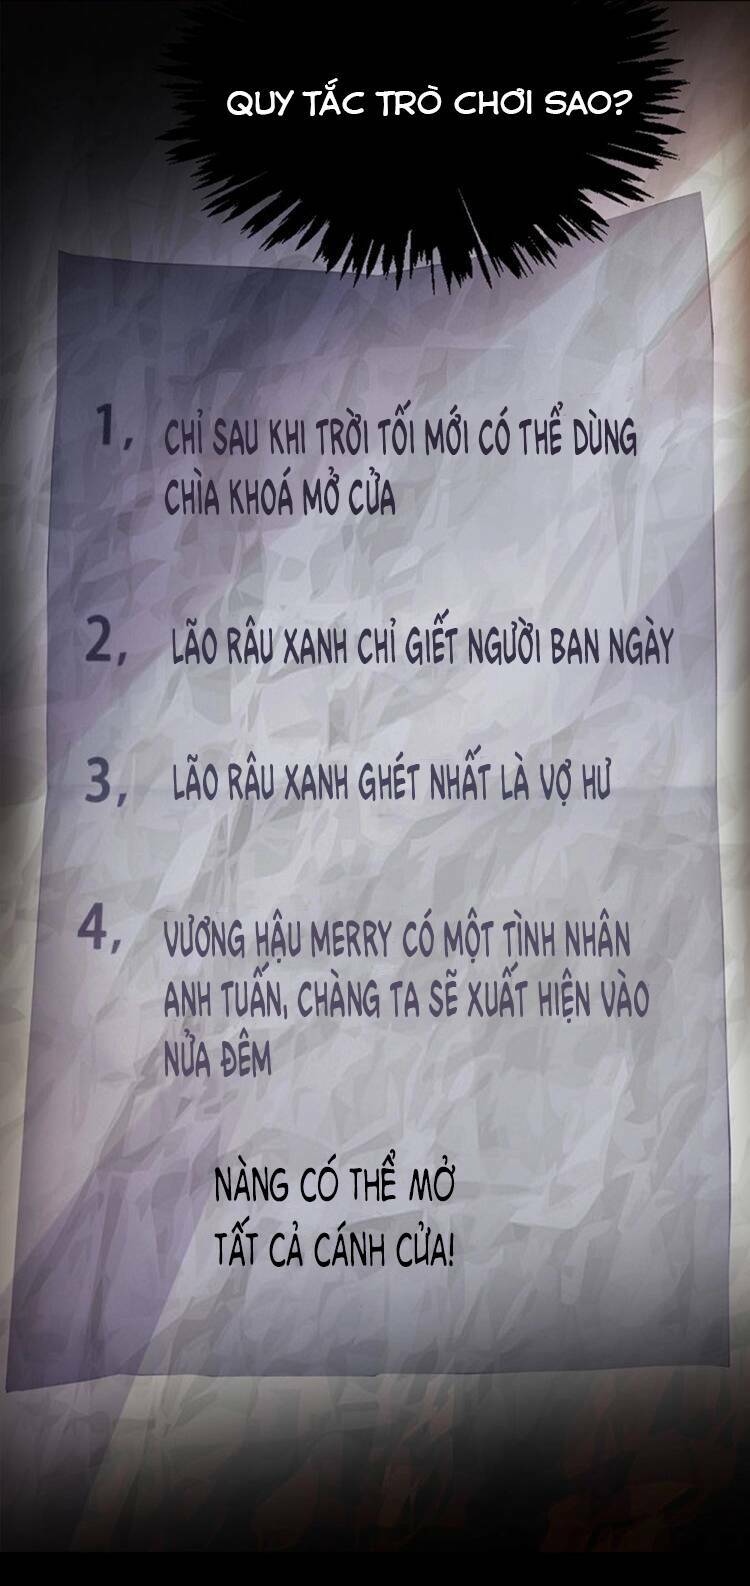 QUY TẮC TRÒ CHƠI SAO?
1, CHỈ SAU KHI TRỜI TỐI MỚI CÓ THỂ DÙNG
CHÌA KHOÁ MỞ CỬA
2, LÃO RÂU XANH CHỈ GIẾT NGƯỜI BAN NGÀY
3, LÃO RÂU XANH GHÉT NHẤT LÀ VỢ HƯ
4, VƯƠNG HẬU MERRY CÓ MỘT TÌNH NHÂN
ANH TUẤN, CHÀNG TA SẼ XUẤT HIỆN VÀO
NỬA ĐÊM
NÀNG CÓ THỂ MỞ
TẤT CẢ CÁNH CỬA!